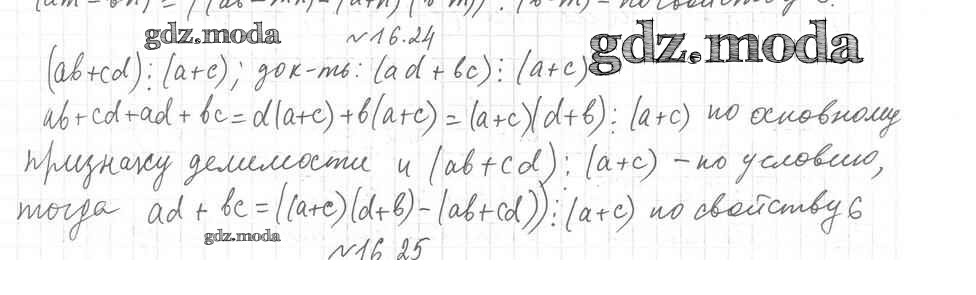 gdz.moda
№16.24
gdz.moda
(ab+cd)⋮(a+c); док-ть: (ad+bc)⋮(a+c)
ab+cd+ad+bc=d(a+c)+b(a+c)=(a+c)(d+b)⋮(a+c) по основному
признаку делимости и (ab+cd)⋮(a+c) – по условию,
тогда ad+bc=((a+c)(d+b)-(ab+cd))⋮(a+c) по свойству 6
gdz.moda
№16.25